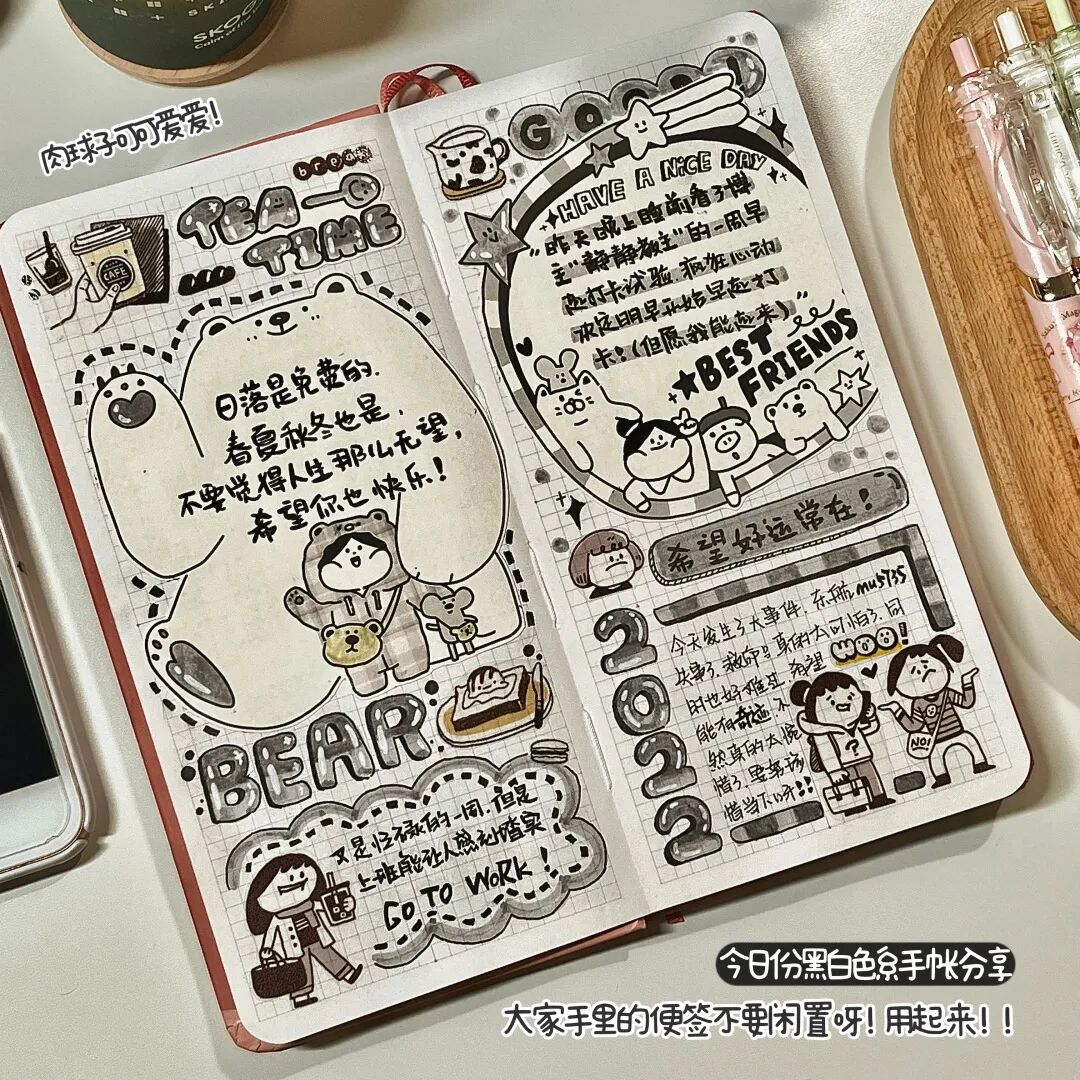 SKOG
Calm of the
肉球子可可爱爱!
bread
TEA
TIME
CAFE
日落是免费的.
春夏秋冬也是,
不要觉得人生那么无望,
希望你也快乐!
BEAR
又是忙碌的一周,但是
上班能让人感到踏实
GO TO WORK!
GOOD
HAVE A NICE DAY
"昨天晚上睡前看了博
主"静静教主"的一周早
起打卡沙验.疯狂心动
决定明早开始早起打
卡!(但愿我能起来)
BEST
FRIENDS
希望好运常在!
2022
今天发生了大事件.东航mu5735
失事了.真的太可怕了.同
时也好难过.希望
能有奇迹.不
然真的太惋
惜了.要
惜当下呀!!
WOO!
?
NO!
今日份黑白色系手帐分享
大家手里的便签不要闲置呀!用起来!!